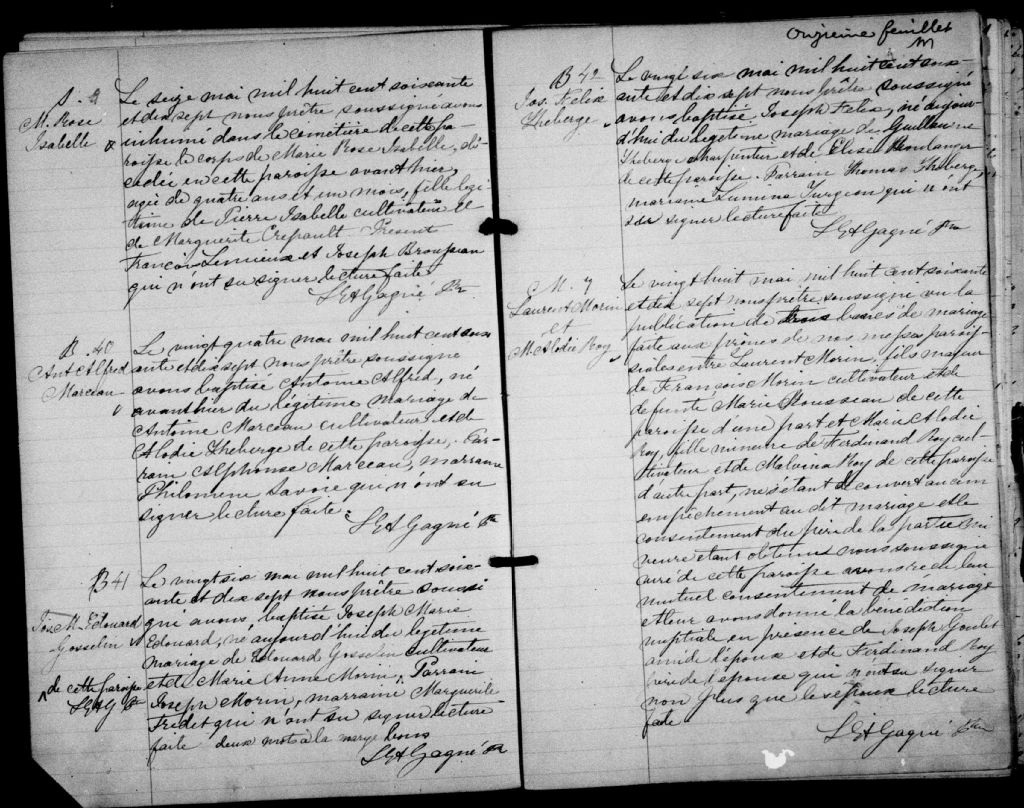 S. 9
M. Rose
Isabelle
Le seize mai mil huit cent soixante
et dix sept nous prêtre, soussigné avons
inhumé dans le cimetière de cette pa-
roisse le corps de Marie Rose Isabelle, dé-
cédée en cette paroisse avant hier,
agée de quatre ans et un mois, fille legi-
time de Pierre Isabelle cultivateur et
de Marguerite Crepault Présent
François Lemieux et Joseph Brousseau
qui n'ont su signer lecture faite
LEAGagné Ptre
B. 40
Ant Alfred
Marceau
Le vingt quatre mai mil huit cent soix
ante et dix sept nous prêtre soussigné
avons baptisé Antoine Alfred, né
avant hier du légitime mariage de
Antoine Marceau cultivateur et de
Alodie Theberge de cette paroisse. Par-
rain Alphonse Marceau, marraine
Philomene Savoie qui n'ont su
signer lecture faite.
LEAGagné Ptre
B 41
Jos. M. Edouard
Gosselin
Le vingt six mai mil huit cent soix-
ante et dix sept nous prêtre soussi
gné avons, baptisé Joseph Marie
Edouard, né aujourd'hui du legitime
mariage de Edouard Gosselin cultivateur
et de Marie Anne Morin ^ Parrain
Joseph Morin, marraine Marguerite
qui n'ont su signer lecture
faite deux mots à la marge bons
LEAGagné Ptre
^ de cette paroisse
LEAG Ptre
Onzieme feuillet
B 42
Jos. Felix
Theberge
Le vingt six mai mil huit cent soix-
ante et dix sept nous prêtre soussigné
avons baptisé Joseph Felix, né aujour-
d'hui du legitime mariage de Guillaume
Theberge charpentier et de Elise Boulanger
de cette paroisse. Parrain Thomas Theberge,
marraine Lumina Turgeon qui n'ont
su signer lecture faite
LEAGagné Ptre
M. 7
Laurent Morin
et
M. Alodie Roy
Le vingt huit mai, mil huit cent soixante
et dix sept nous prêtre soussigné vu la
publication de bans de mariage
faite aux prônes de nos messes parois-
siales entre Laurent Morin, fils majeur
de François Morin cultivateur et de
defunte Marie Rousseau de cette
paroisse d'une part et Marie Alodie
Roy, fille mineure de Ferdinand Roy cul-
tivateur et de Malvina Roy de cette paroisse
d'autre part, ne s'étant découvert aucun
empêchement au dit mariage et le
consentement du père de la partie mi
neure etant obtenu nous soussigné
curé de cette paroisse avons reçu leur
mutuel consentement de mariage
et leur avons donné la bénédiction
nuptiale en présence de Joseph Goulet
ami de l'époux et de Ferdinand Roy
père de l'épouse qui n'ont su signer
non plus que les époux lecture
faite
LEAGagné Ptre